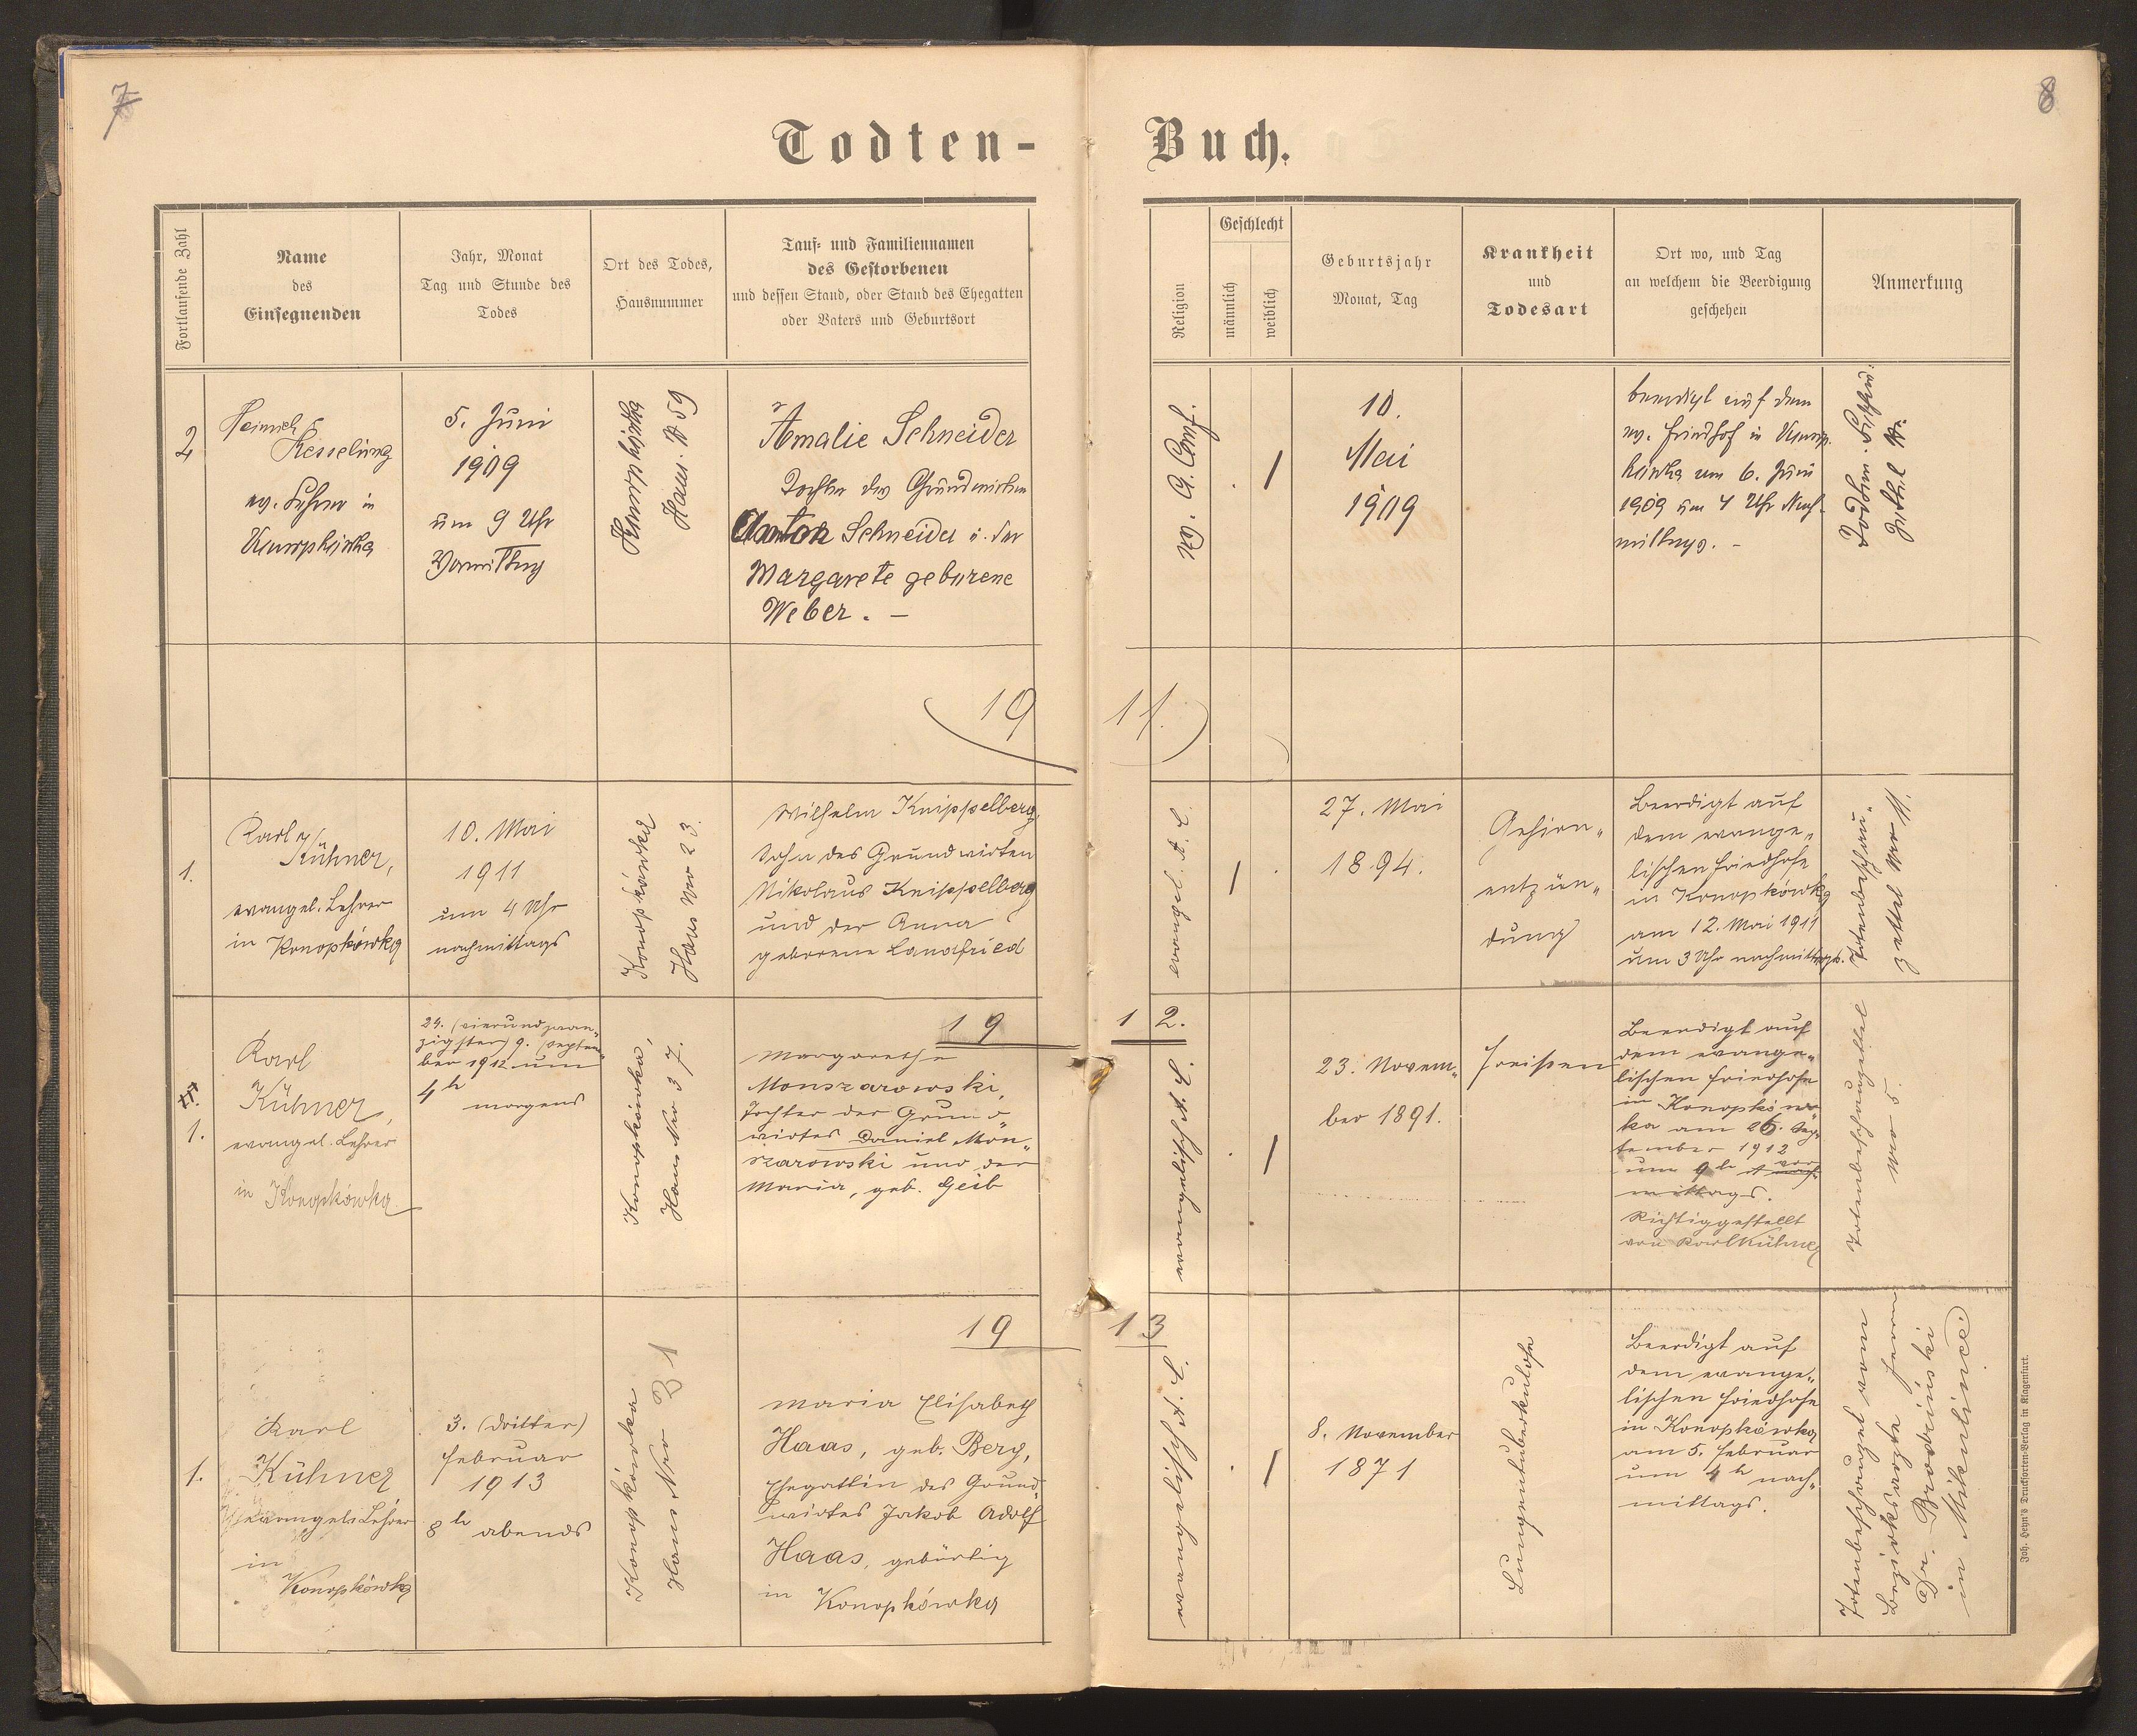 7
8
Todten-
Buch.
Fortlaufende Zahl
Name
des
Einsegnenden
Jahr, Monat
Tag und Stunde des
Todes
Ort des Todes,
Hausnummer
Tauf- und Familiennamen
des Gestorbenen
und dessen Stand, oder Stand des Ehegatten
oder Vaters und Geburtsort
Religion
Geschlecht
männlich
weiblich
Geburtsjahr
Monat, Tag
Krankheit
und
Todesart
Ort wo, und Tag
an welchem die Beerdigung
geschehen
Anmerkung
2
Heinrich
Kesselring
ev. Lehrer in
Konopkówka
5. Juni
1909
um 9 Uhr
Vormittag
Konopkówka
Haus. N 59
Amalie Schneider
Tochter des Grundwirten
Anton Schneider u. der
Margarete geborene
Weber. –
ev. A. Conf.
. 1
10.
Mai
1909
beerdigt auf dem
ev. Friedhof in Konop-
kówka am 6. Juni
1909 um 4 Uhr Nach-
mittags. –
Zettel Nr.
19 11.
1.
Karl
Kühner,
evangel. Lehrer
in Konopkówka
10. Mai
1911
um 4 Uhr
nachmittags
Konopkówka
Haus Nro 23.
Wilhelm Knippelberg,
Sohn des Grundwirten
Nikolaus Knippelberg
und der Anna
geborene Landfried
evangel. A. C.
1 .
27. Mai
1894.
Gehirn„
entzün„
dung
Beerdigt auf
dem evange„
lischen Friedhofe
in Konopkówka
am 12. Mai 1911
um 3 Uhr nachmittags.
Totenbeschau„
zettel Nro 11.
19 12.
1.
Karl
Kühner,
evangel. Lehrer
in Konopkówka
24. (vierundzwan„
zigsten) 9. Septem„
ber 1912 um
4h morgens
Konopkówka,
Haus Nro 37.
Margarethe
Monszarowski,
Tochter des Grund„
wirtes Daniel Mon„
szarowski und der
Maria, geb. Geib
evangelisch A. C.
. 1
23. Novem„
ber 1891.
Fraisen
Beerdigt auf
dem evange„
lischen Friedhofe
in Konopków„
ka am 26. Sep„
tember 1912
um 9h vor
mittags.
Richtiggestellt
von Karl Kühner
Totenbeschauzettel
Nro 5.
19 13
1.
Karl
Kühner
evangel. Lehrer
in
Konopkówka
3. (dritter)
Februar
1913
8h abends
Konopkówka
Haus Nro 31
Maria Elisabeth
Haas, geb. Berg,
Ehegattin des Grund„
wirtes Jakob Adolf
Haas, gebürtig
in Konopkówka
evangelisch A. C.
. 1
8. November
1871
Lungentuberkulose
Beerdigt auf
dem evange„
lischen Friedhofe
in Konopkówka
am 5. Februar
um 4h nach„
mittags.
Totenbeschauzettel vom
Bezirksarzte Herrn
Dr. Brodziński
in Mikulińce
Joh. Heyn's Drucksorten-Verlag in Klagenfurt.